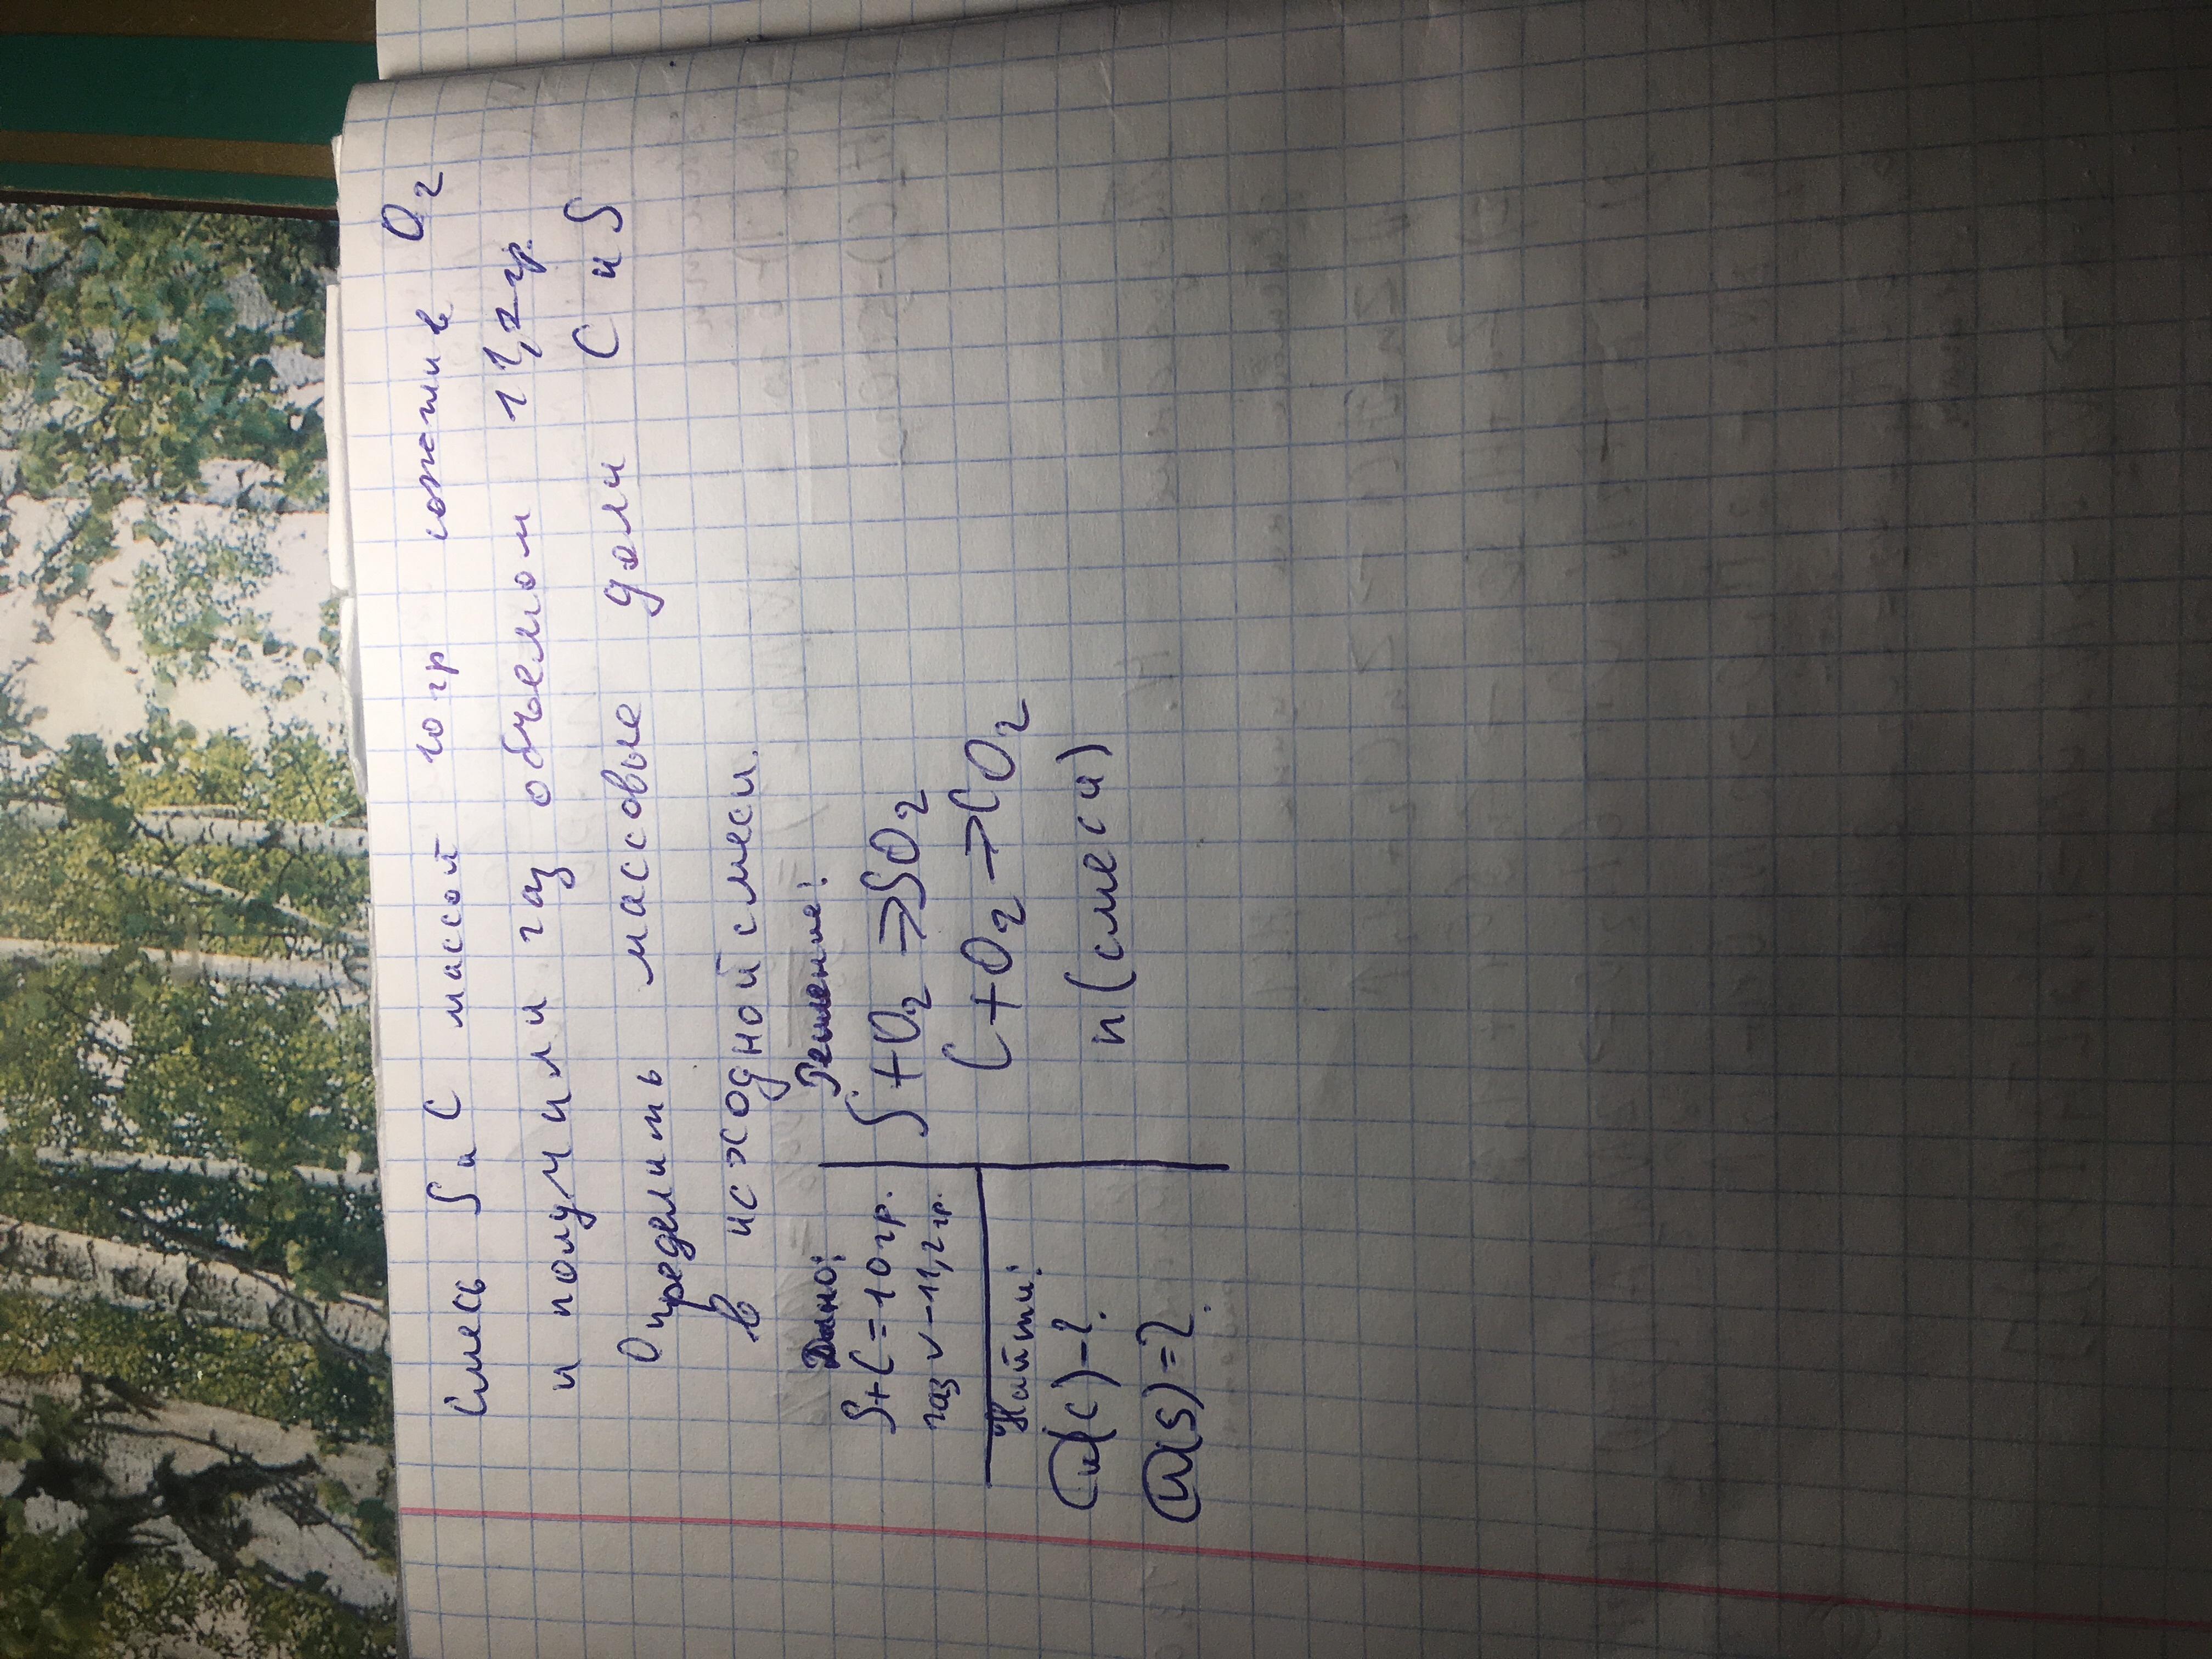 Смесь S и C массой 10 гр сожгли в O2
и получили газ объемом 11,2 гр.
Определить массовые доли C и S
в исходной смеси.
Дано:
S+C=10 гр.
газ v - 11,2 гр.
Найти:
ω(c)-?
ω(s)=?
Решение:
S+O2→SO2
C+O2→CO2
n(смеси)